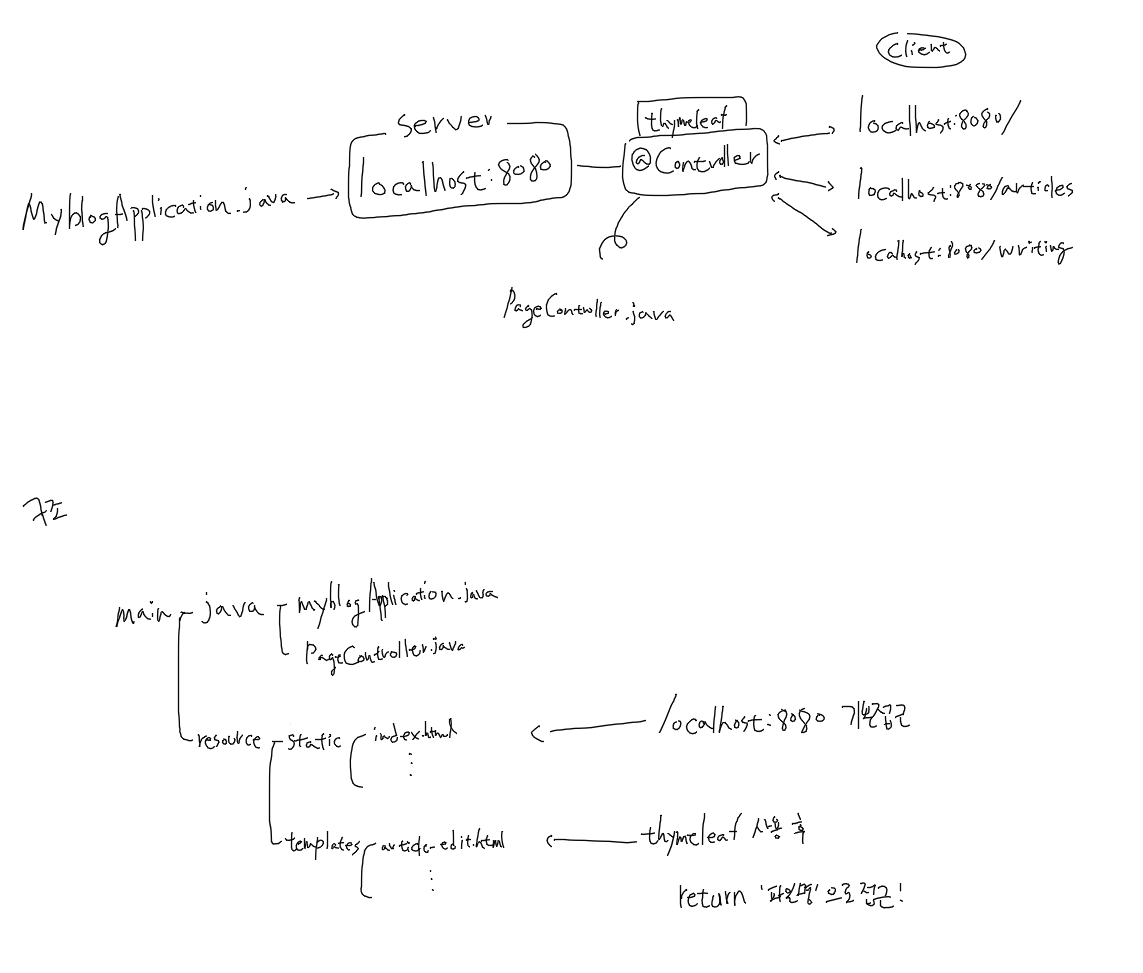 Client
Server
thymeleaf
localhost:8080/
MyblogApplication.java
localhost:8080
@Controller
localhost:8080/articles
localhost:8080/writing
PageController.java
구조
main
java
myblogApplication.java
PageController.java
resource
static
index.html
localhost:8080 기본접근
templates
article-edit.html
thymeleaf 사용 후
return '파일명'으로 접근!